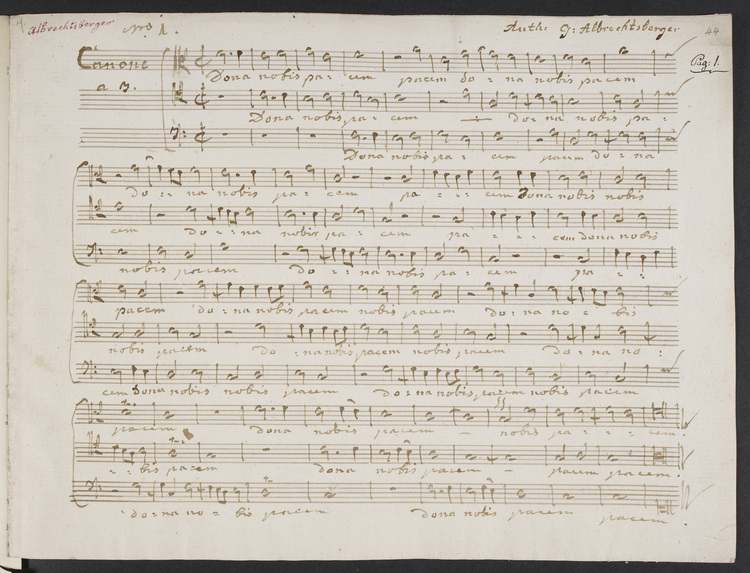 Albrechtsberger
Nro 1.
Auth: G: Albrechtsberger
44
Pag: 1.
Canone
a 3.
Dona nobis pa: cem pacem do: na nobis pacem
Dona nobis pa: cem — do: na nobis pa:
Dona nobis pa: cem pacem do: na
do: : na nobis pa: cem pa: : : cem Dona nobis nobis
cem do: : na nobis pa: cem pa: : : cem dona nobis
nobis pacem do: : : na nobis pa: cem pa: :
pacem do: na nobis pacem nobis pacem do: na no: bis
nobis pacem do: na nobis pacem nobis pacem do: na no:
cem Dona nobis nobis pacem do: na nobis pacem nobis pacem
pacem dona nobis pacem — nobis pa: : : cem.
: : bis pacem dona nobis pacem — pacem pacem.
do: na no: bis pacem dona nobis pacem pacem